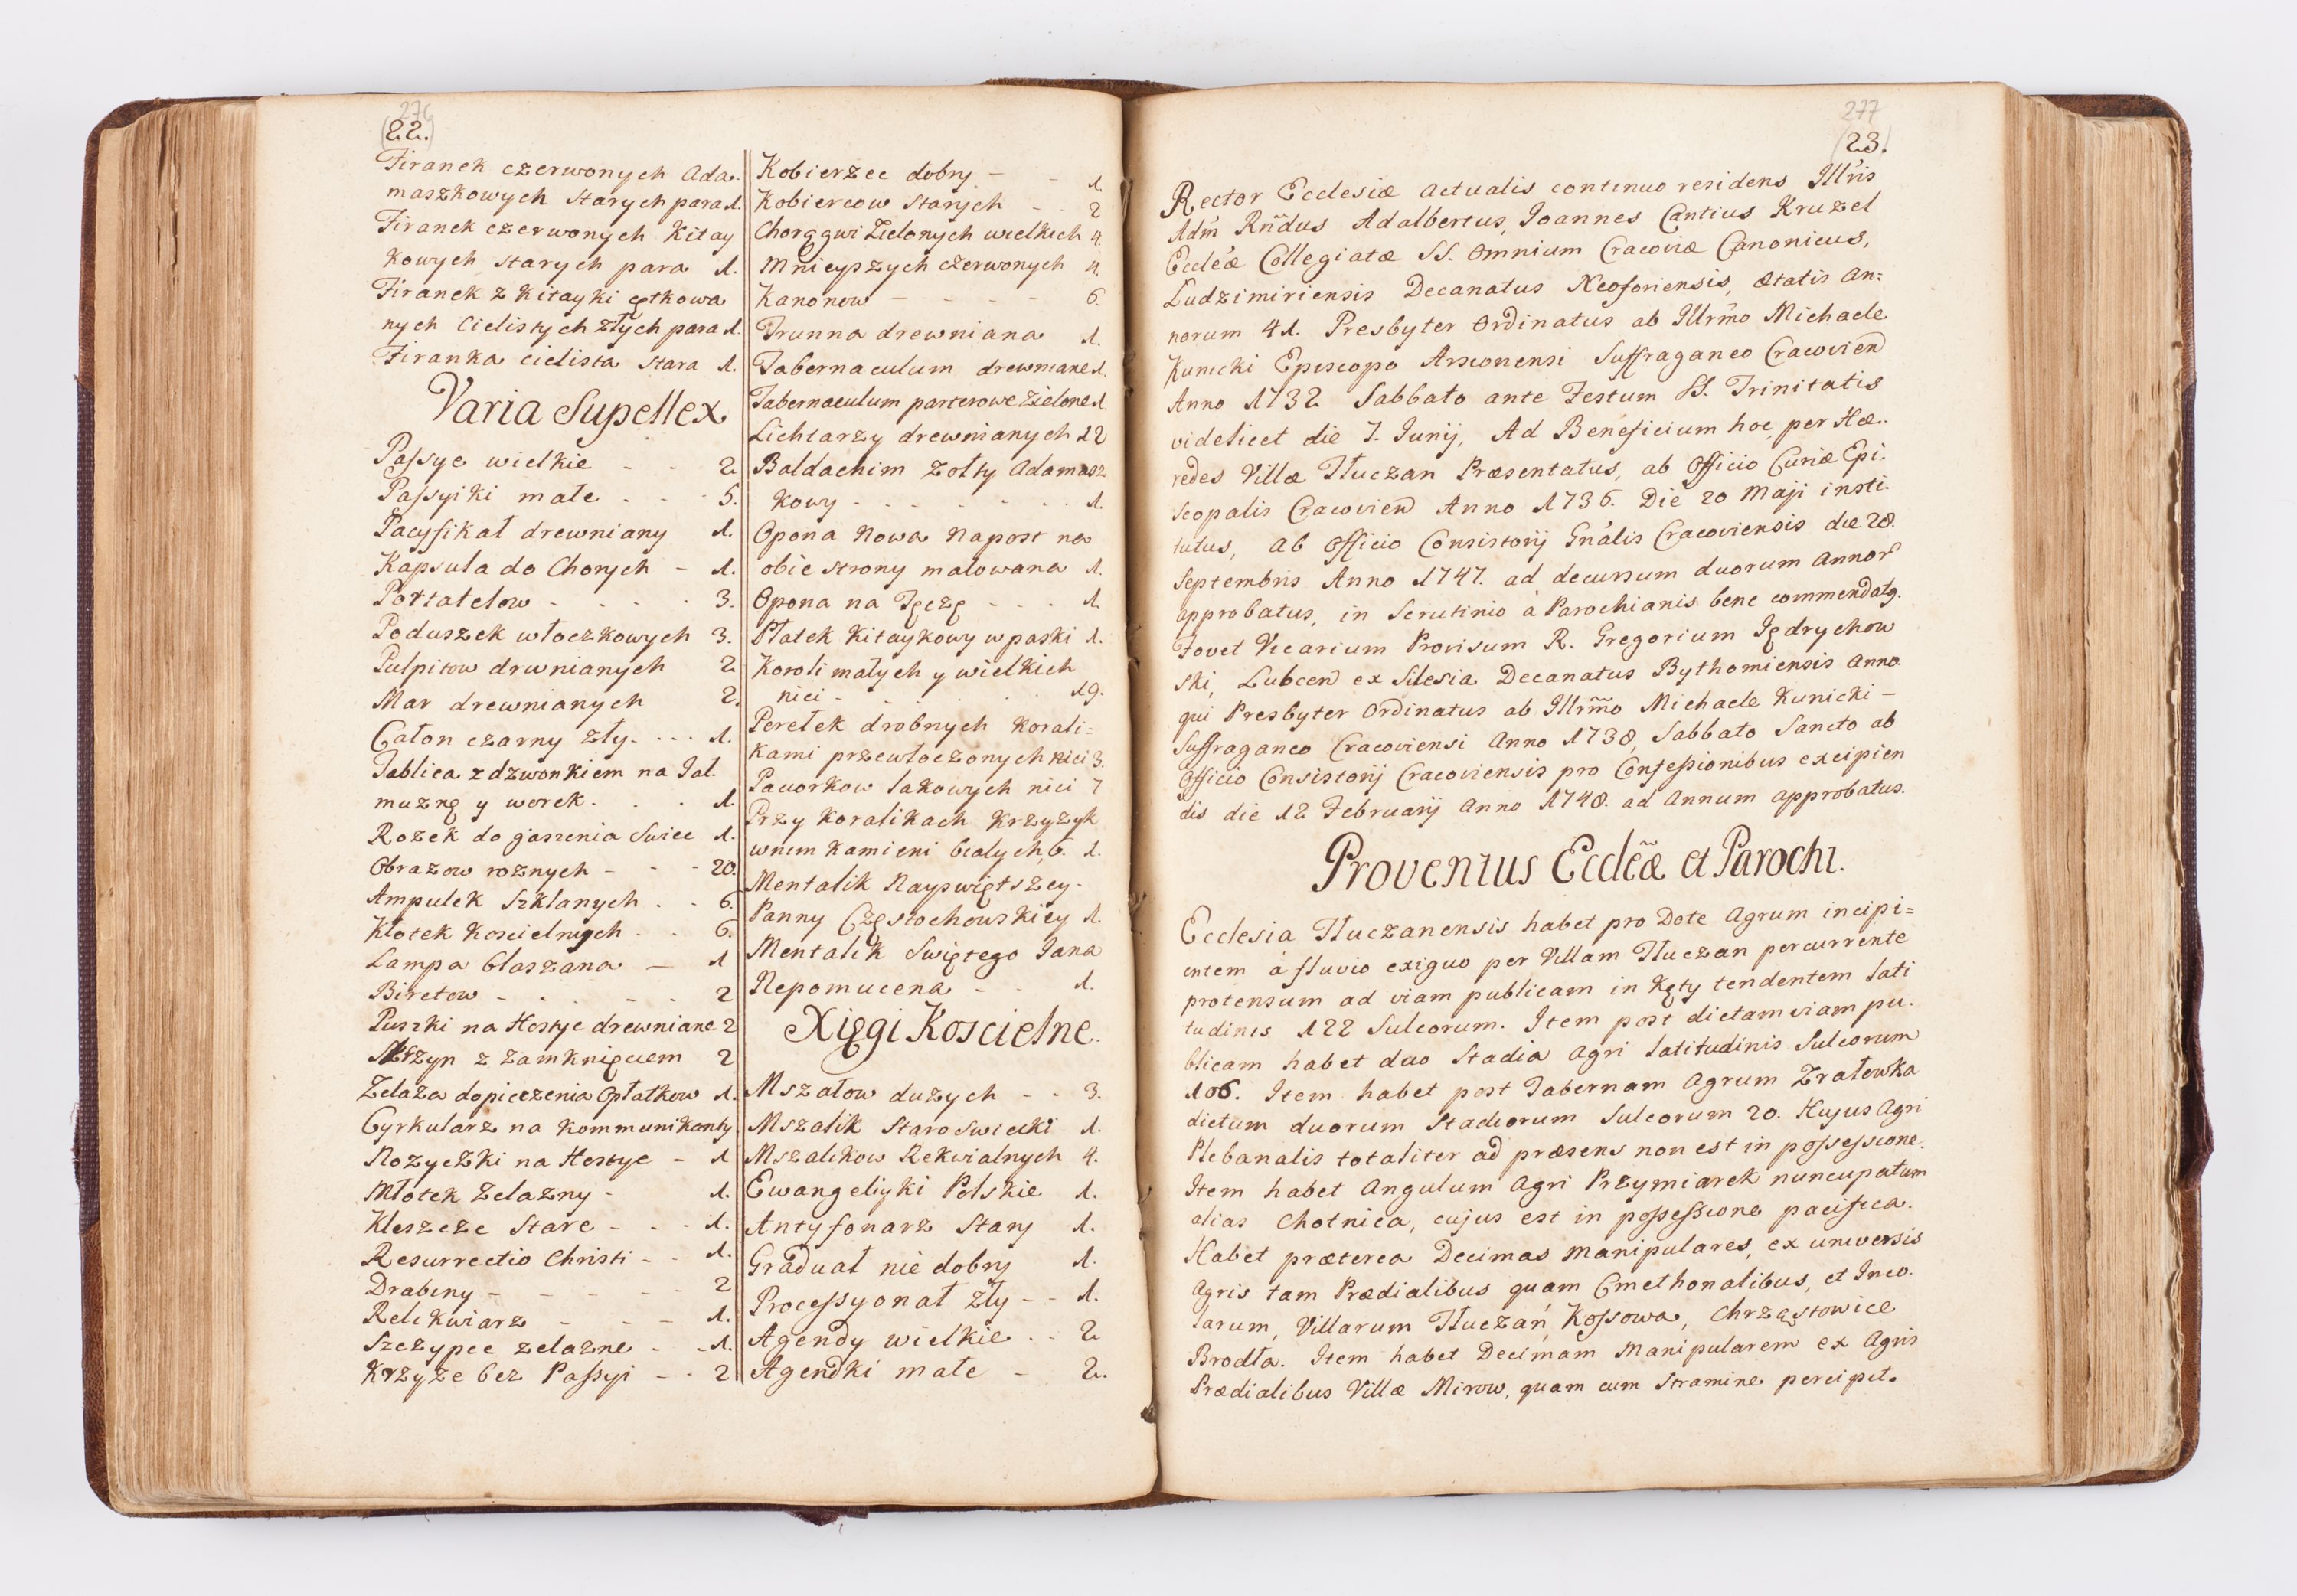 276
(22.)
Firanek czerwonych Ada-
maszkowych Starych para 1.
Firanek czerwonych Kitay
kowych starych para 1.
Firanek z Kitayki cętkowa
nych Cielistych złych para 1.
Firanka cielista stara 1.
Varia Supellex
Passye wielkie - - 2
Passyiki małe . . . 5.
Pacyfikał drewniany 1.
Kapsuła do Chorych - 1.
Portatelow - . . . 3.
Poduszek włoczkowych 3.
Pulpitow drwnianych 2
Mar drewnianych 2.
Całon czarny zły. . . . 1.
Tablica z dzwonkiem na Jał.
mużnę y worek. . . . 1.
Rożek do gaszenia Swiec 1.
Obrazow rożnych - - - 20.
Ampułek Szklanych . . 6.
Kłotek Koscielnych . . 6.
Lampa blaszana - 1
Biretow - . . - . 2
Puszki na Hostye drewniane 2
Skrzyn z zamknięciem 2
Zelaza do pieczenia Opłatkow 1.
Cyrkularz na Kommunikanty
Nozyczki na Hostye - 1
Młotek Zelazny - 1.
Kleszcze Stare - . - 1.
Resurrectio Christi - - 1.
Drabiny - - - - - 2
Relikwiarz - - - 1.
Szczypce zelazne - - 1.
Krzyże bez Passyi - - 2
Kobierzec dobry - - 1.
Kobiercow Starych - . 2
Chorągwi Zielonych wielkich 4.
Mnieyszych czerwonych 4.
Kanonow - - - - - 6.
Trunna drewniana 1.
Tabernaculum drewniane 1.
Tabernaculum parterowe Zielone 1.
Lichtarzy drewnianych 12
Baldachim żołty Adamasz
kowy - . . . . . . 1.
Opona Nowa Napost na
obie strony malowana 1.
Opona na Tęczę - - . 1.
Płatek Kitaykowy w paski 1.
Korali małych y wielkich
nici - . . . . 19.
Perełek drobnych korali=
kami przewłoczonych nici 3.
Paciorkow lakowych nici 7
Przy koralikach Krzyzyk
wnim kamieni białych, 6. 1.
Mentalik Nayswiętszey-
Panny Częstochowskiey 1.
Mentalik Swiętego Jana
Nepomucena - - 1.
Xięgi Koscielne.
Mszałow duzych - - 3.
Mszalik Staroswiecki 1.
Mszalikow Rekwialnych 4.
Ewangeliyki Polskie 1.
Antyfonarz Stary 1.
Graduał nie dobry 1.
Processyonał zły - - 1.
Agendy wielkie . . 2
Agendki małe - 2.
277
(23.)
Rector Ecclesiæ actualis continuo residens Illris
Adm Rndus Adalbertus, Joannes Cantius Kruzel
Eccleæ Collegiatæ SS. Omnium Cracoviæ Canonicus,
Ludzimiriensis Decanatus Neoforiensis, Ætatis An=
norum 41. Presbyter Ordinatus ab Illrmo Michaele
Kunicki Episcopo Arsionensi Suffraganeo Cracovien
Anno 1732 Sabbato ante Festum SS. Trinitatis
videlicet die 7. Junij, Ad Beneficium hoc, per Hæ-
redes Villæ Tłuczan Præsentatus, ab Officio Curiæ Epi-
scopalis Cracovien Anno 1736. Die 20 Maji insti-
tutus, ab Officio Consistorij Gnalis Cracoviensis die 28.
Septembris Anno 1747. ad decursum duorum Annor
approbatus, in Scrutinio à Parochianis bene commendatg.
Fovet Vicarium Provisum R. Gregorium Jędrychow
ski, Lubcen ex Silesia Decanatus Bythomiensis Anno.
qui Presbyter Ordinatus ab Illrmo Michaele Kunicki -
Suffraganeo Cracoviensi Anno 1738, Sabbato Sancto ab
Officio Consistorij Cracoviensis pro Confessionibus excipien
dis die 12 Februarij Anno 1748. ad Annum approbatus.
Proventus Eccleæ et Parochi.
Ecclesia Tłuczanensis habet pro Dote Agrum incipi=
entem à fluvio exiguo per Villam Tłuczan percurrente
protensum ad viam publicam in Kęty tendentem lati
tudinis 122 Sulcorum. Item post dictam viam pu-
blicam habet duo Stadia Agri latitudinis Sulcorum
106. Item habet post Tabernam Agrum Zrałowka
dictum duorum Stadiorum Sulcorum 20. Hujus Agri
Plebanalis totaliter ad præsens non est in possessione.
Item habet Angulum Agri Przymiarek nuncupatum
alias Chotnica, cujus est in possessione pacifica.
Habet præterea Decimas Manipulares, ex universis
Agris tam Prædialibus quam Cmethonalibus, et Inco-
larum, Villarum Tłuczań, Kossowa, Chrząstowice
Brodła. Item habet Decimam Manipularem ex Agris
Prædialibus Villæ Mirow, quam cum Stramine percipit.